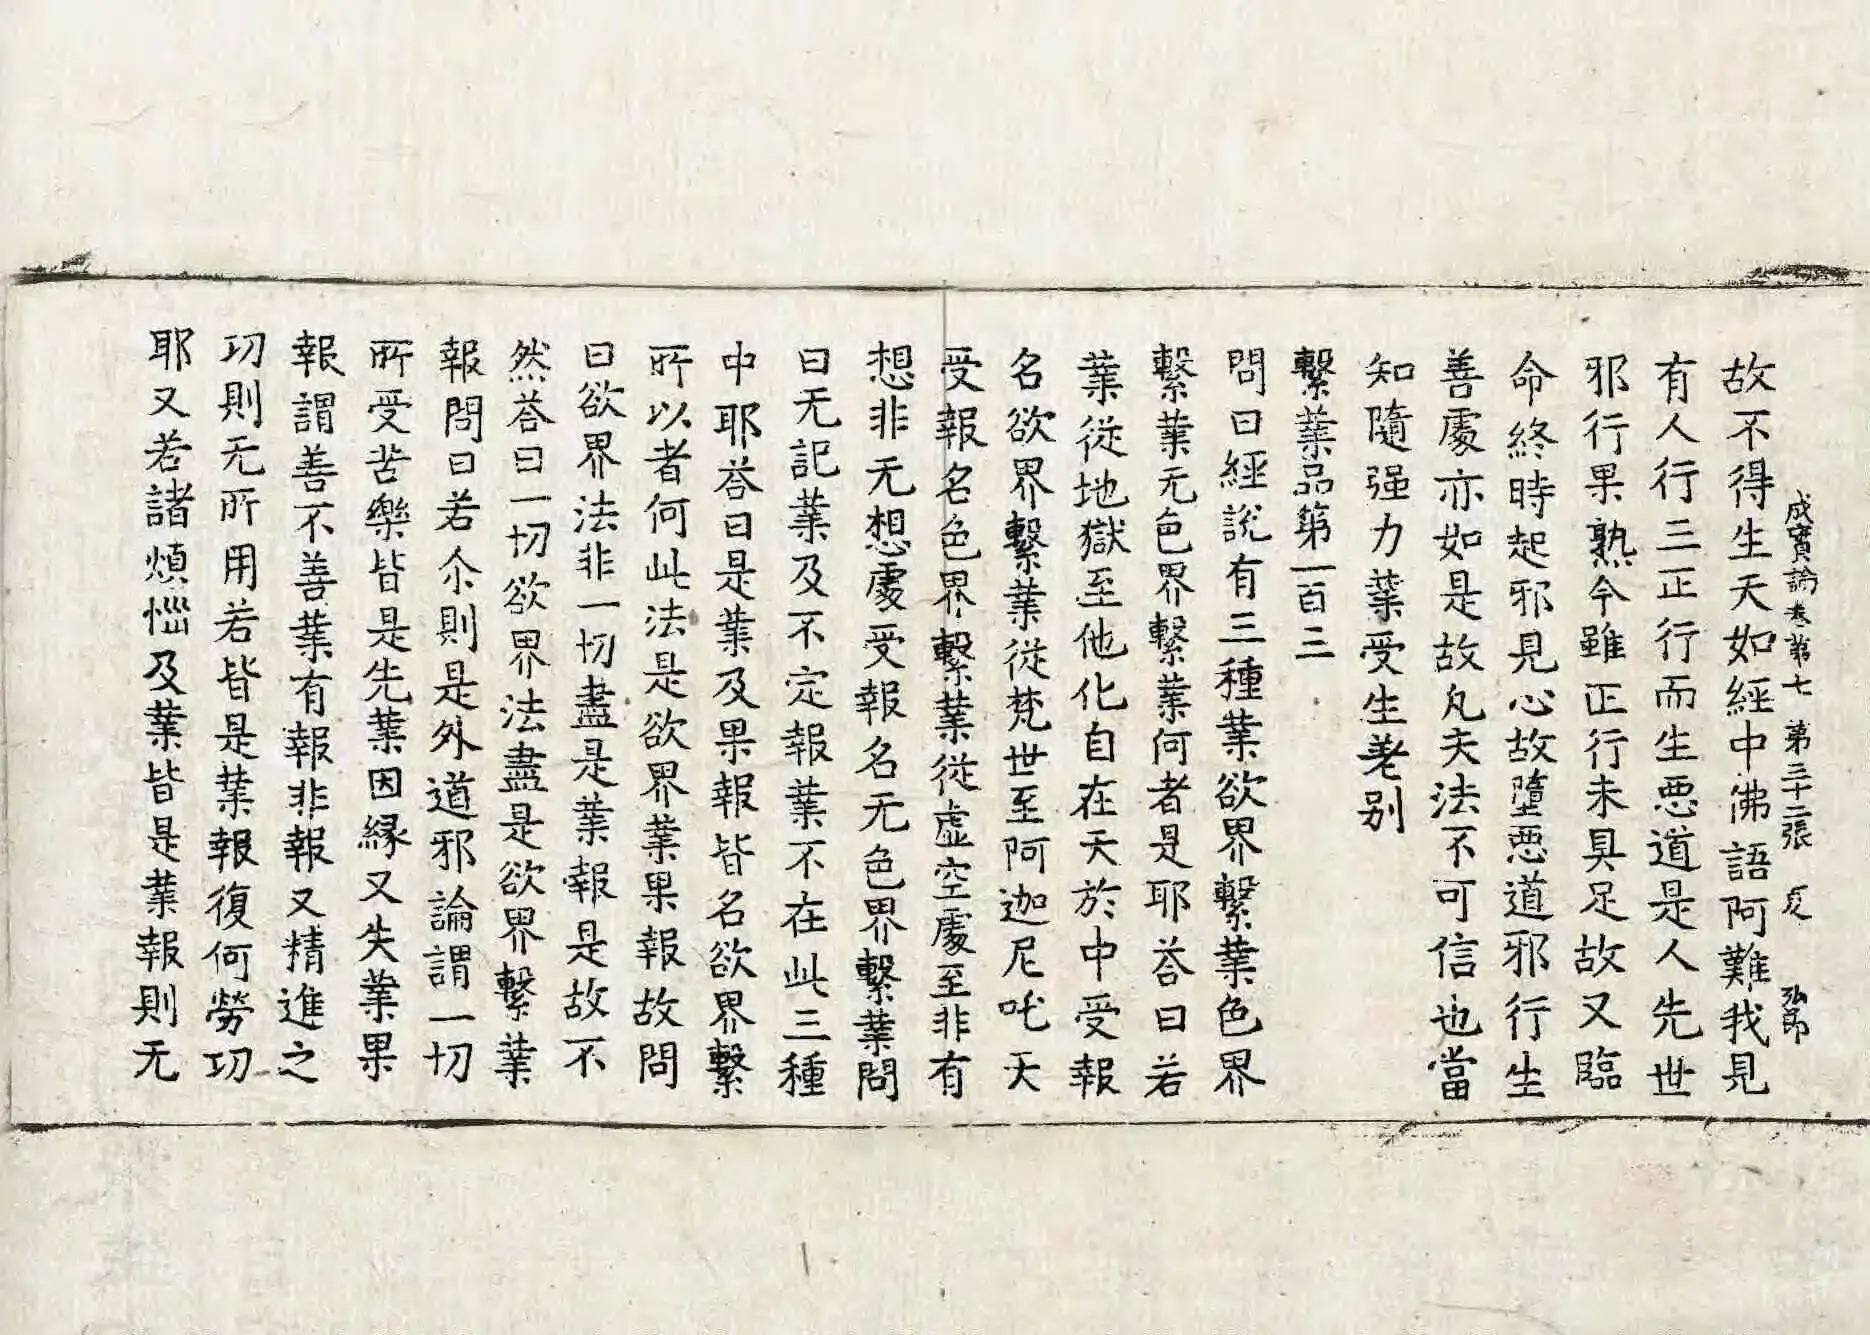 成實論卷第七 第三十二張 弘郎
故不得生天如經中佛語阿難我見
有人行三正行而生惡道是人先世
邪行果熟今雖正行未具足故又臨
命終時起邪見心故墮惡道邪行生
善處亦如是故凡夫法不可信也當
知隨强力業受生差別
繫業品第一百三
問曰經說有三種業欲界繫業色界
繫業无色界繫業何者是耶荅曰若
業從地獄至他化自在天於中受報
名欲界繫業從梵世至阿迦尼吒天
受報名色界繫業從虛空處至非有
想非无想處受報名无色界繫業問
曰无記業及不定報業不在此三種
中耶荅曰是業及果報皆名欲界繫
所以者何此法是欲界業果報故問
曰欲界法非一切盡是業報是故不
然荅曰一切欲界法盡是欲界繫業
報問曰若尒則是外道邪論謂一切
所受苦樂皆是先業因緣又失業果
報謂善不善業有報非報又精進之
功則无所用若皆是業報復何勞功
耶又若諸煩惱及業皆是業報則无